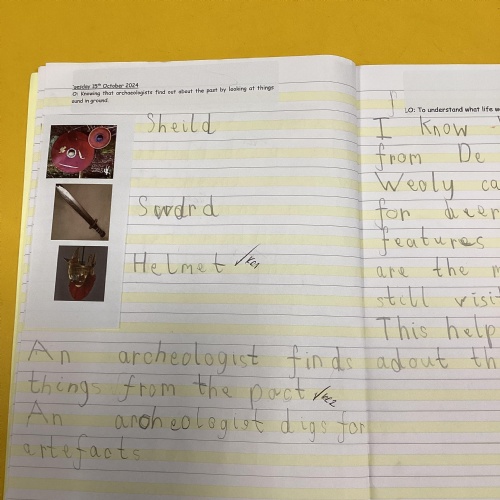 uesday 15th October 2024
O: Knowing that archaeologists find out about the past by looking at things
ound in ground.
Sheild
Sword
Helmet ✓KC1
An archeologist finds adout th
things from the past ✓KC2
An archeologist digs for
artefacts
LO: To understand what life w
I know
from De
Weoly ca
for deer
features
are the m
still visit
This help